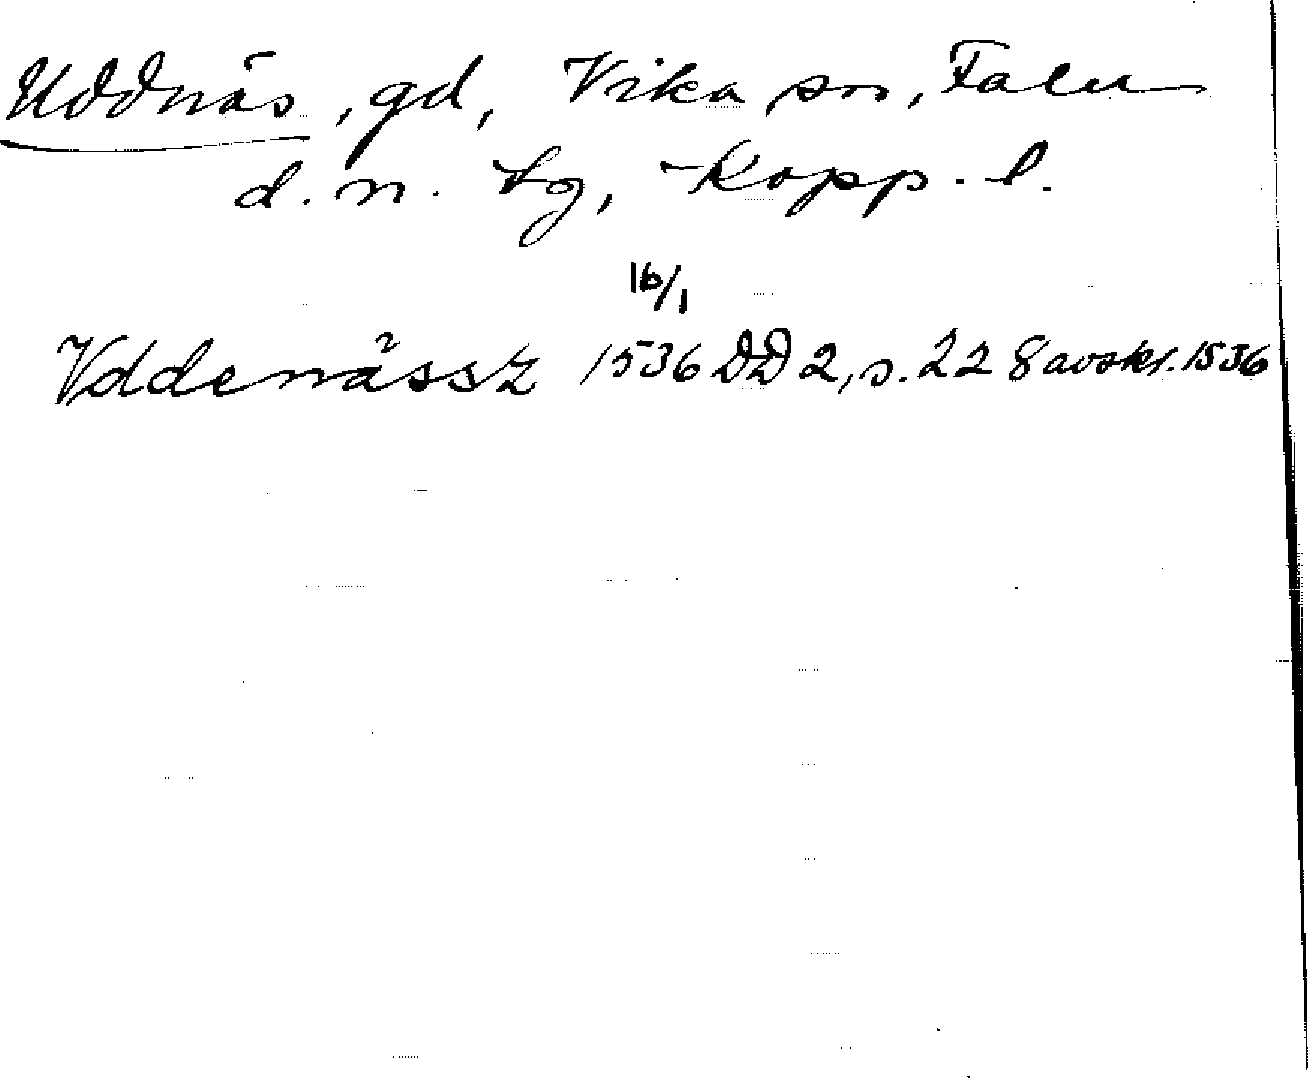 Uddnäs, gd, Vika sn, Falu
d. n. tg, Kopp. l.
16/1
Vddenässz 1536 DD 2, s. 228 avskr. 1536